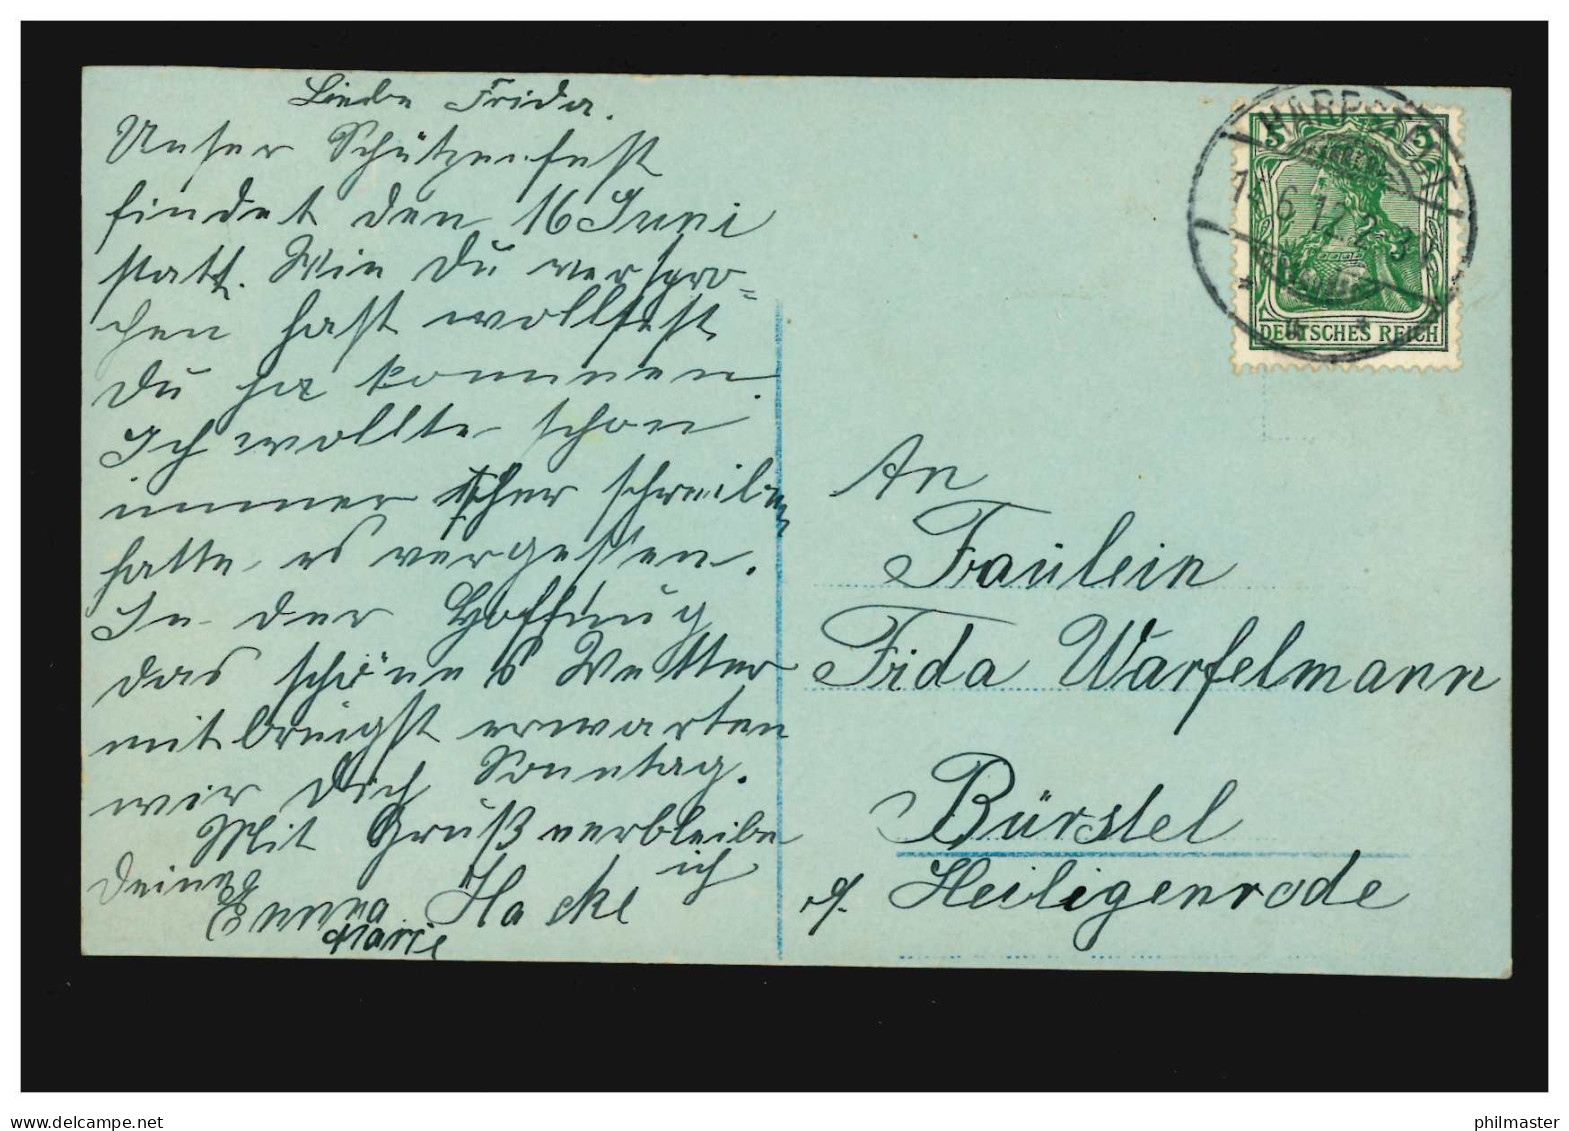 Liebe Frida.
Unser Schützenfest
findet den 16 Juni
statt. Wie Du verspro=
chen hast wolltest
Du ja kommen.
Ich wollte schon
immer eher schreiben
hatte es vergessen.
In der Hoffnug
das schönes Wetter
mitbringst erwarten
wir Dich Sonntag.
Mit Gruß verbleibe
ich
Deine
Emma Hacke
Marie
HARPSTEDT
6.12.2-3
5 5
DEUTSCHES REICH
An
Fräulein
Frida Warfelmann
Bürstel
p. Heiligenrode
www.delcampe.net
philmaster